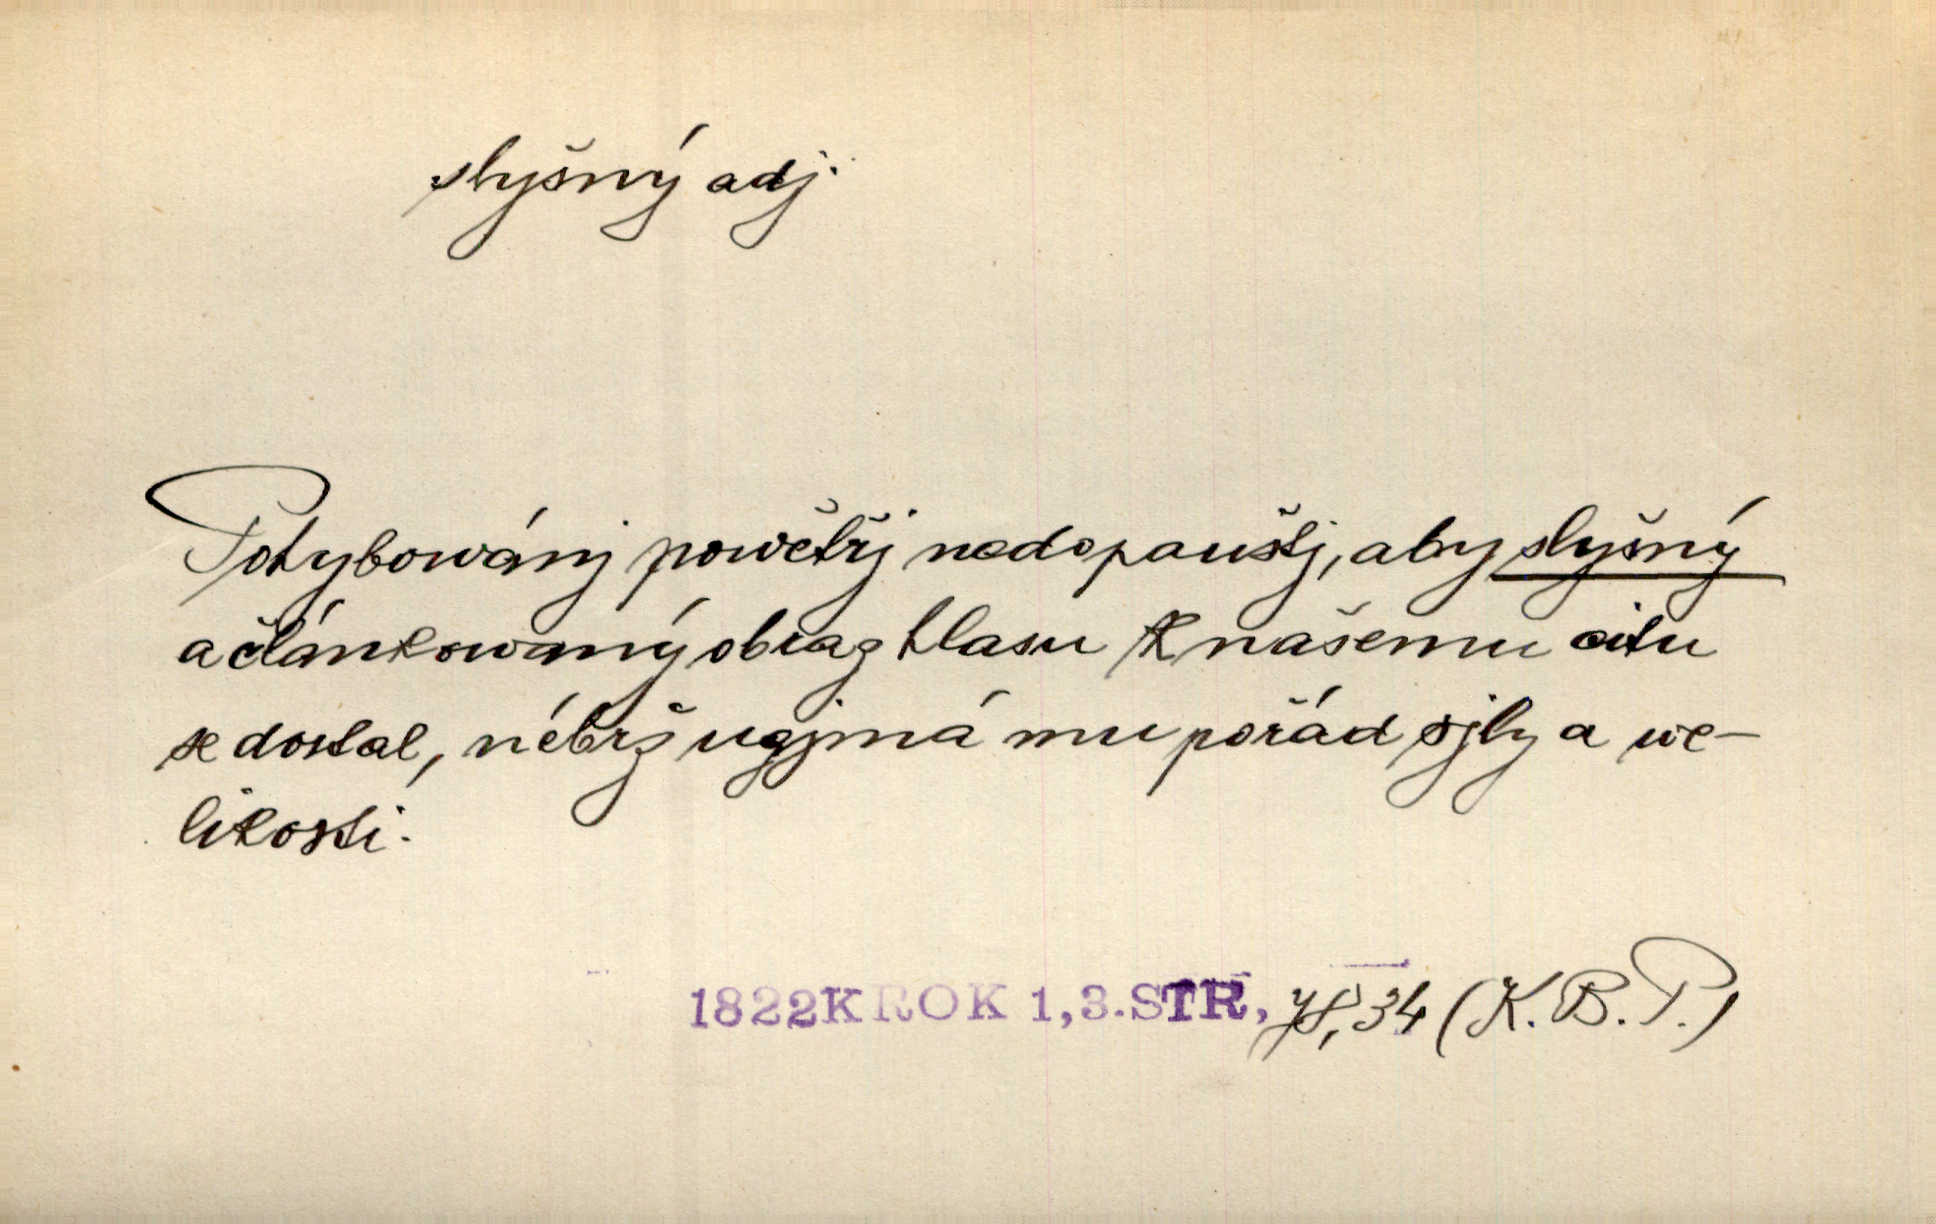 slyšný adj.
Pohybowánj powětřj nedopauštj, aby slyšný
a článkowaný obraz hlasu k našemu citu
se dostal, nébrž ugjmá mu pořád sjly a we-
likosti.
1822 KROK 1,3.STR, 34 (K. B. P.)